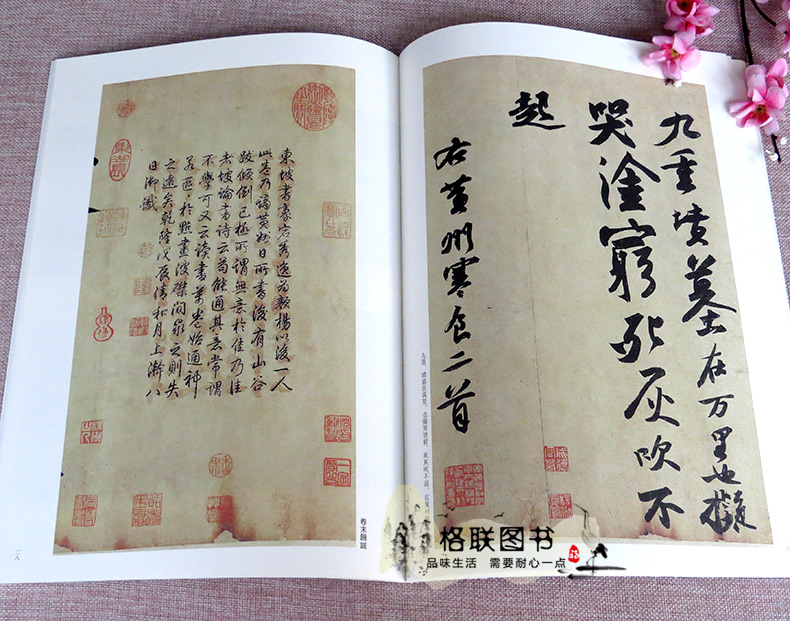 九重墳墓在万里也擬
哭塗窮死灰吹不
起
右黃州寒食二首
九重,墳墓在萬里。也擬哭塗窮,死灰吹不起。右黃
東坡書豪宕秀逸為顏楊以後一人
此卷乃謫黃州日所書後有山谷
跋傾倒已極所謂無意於佳乃佳
者坡論書詩云苟能通其意常謂
不學可又云讀書萬卷始通神
若區區於點畫波磔間求之則失
之遠矣乾隆戊辰清和月上澣八
日御識
卷末題跋
二八
格联图书
品味生活 需要耐心一点